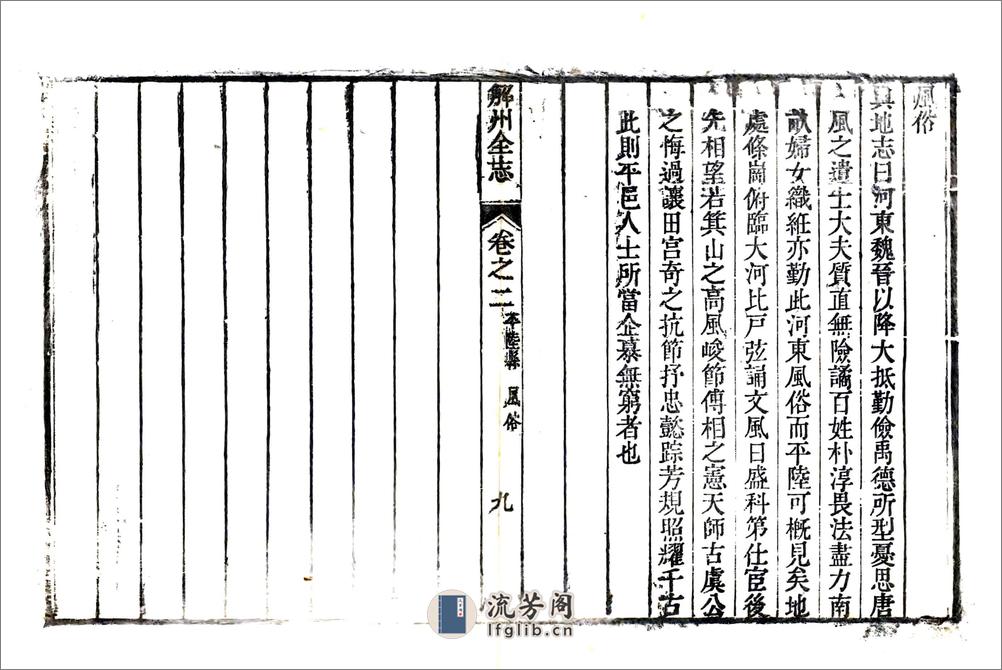 風俗
輿地志曰河東魏晉以降大抵勤儉禹德所型憂思唐
風之遺士大夫質直無險譎百姓朴淳畏法盡力南
畝婦女織紝亦勤此河東風俗而平陸可槪見矣地
處條崗俯臨大河比戸弦誦文風日盛科第仕宦後
先相望若箕山之高風峻節傅相之憲天師古虞公
之悔過讓田宫奇之抗節抒忠懿踪芳規照耀千古
此則平邑人士所當企慕無窮者也
解州全志
卷之二
平陸縣 風俗
九
流芳阁
lfglib.cn